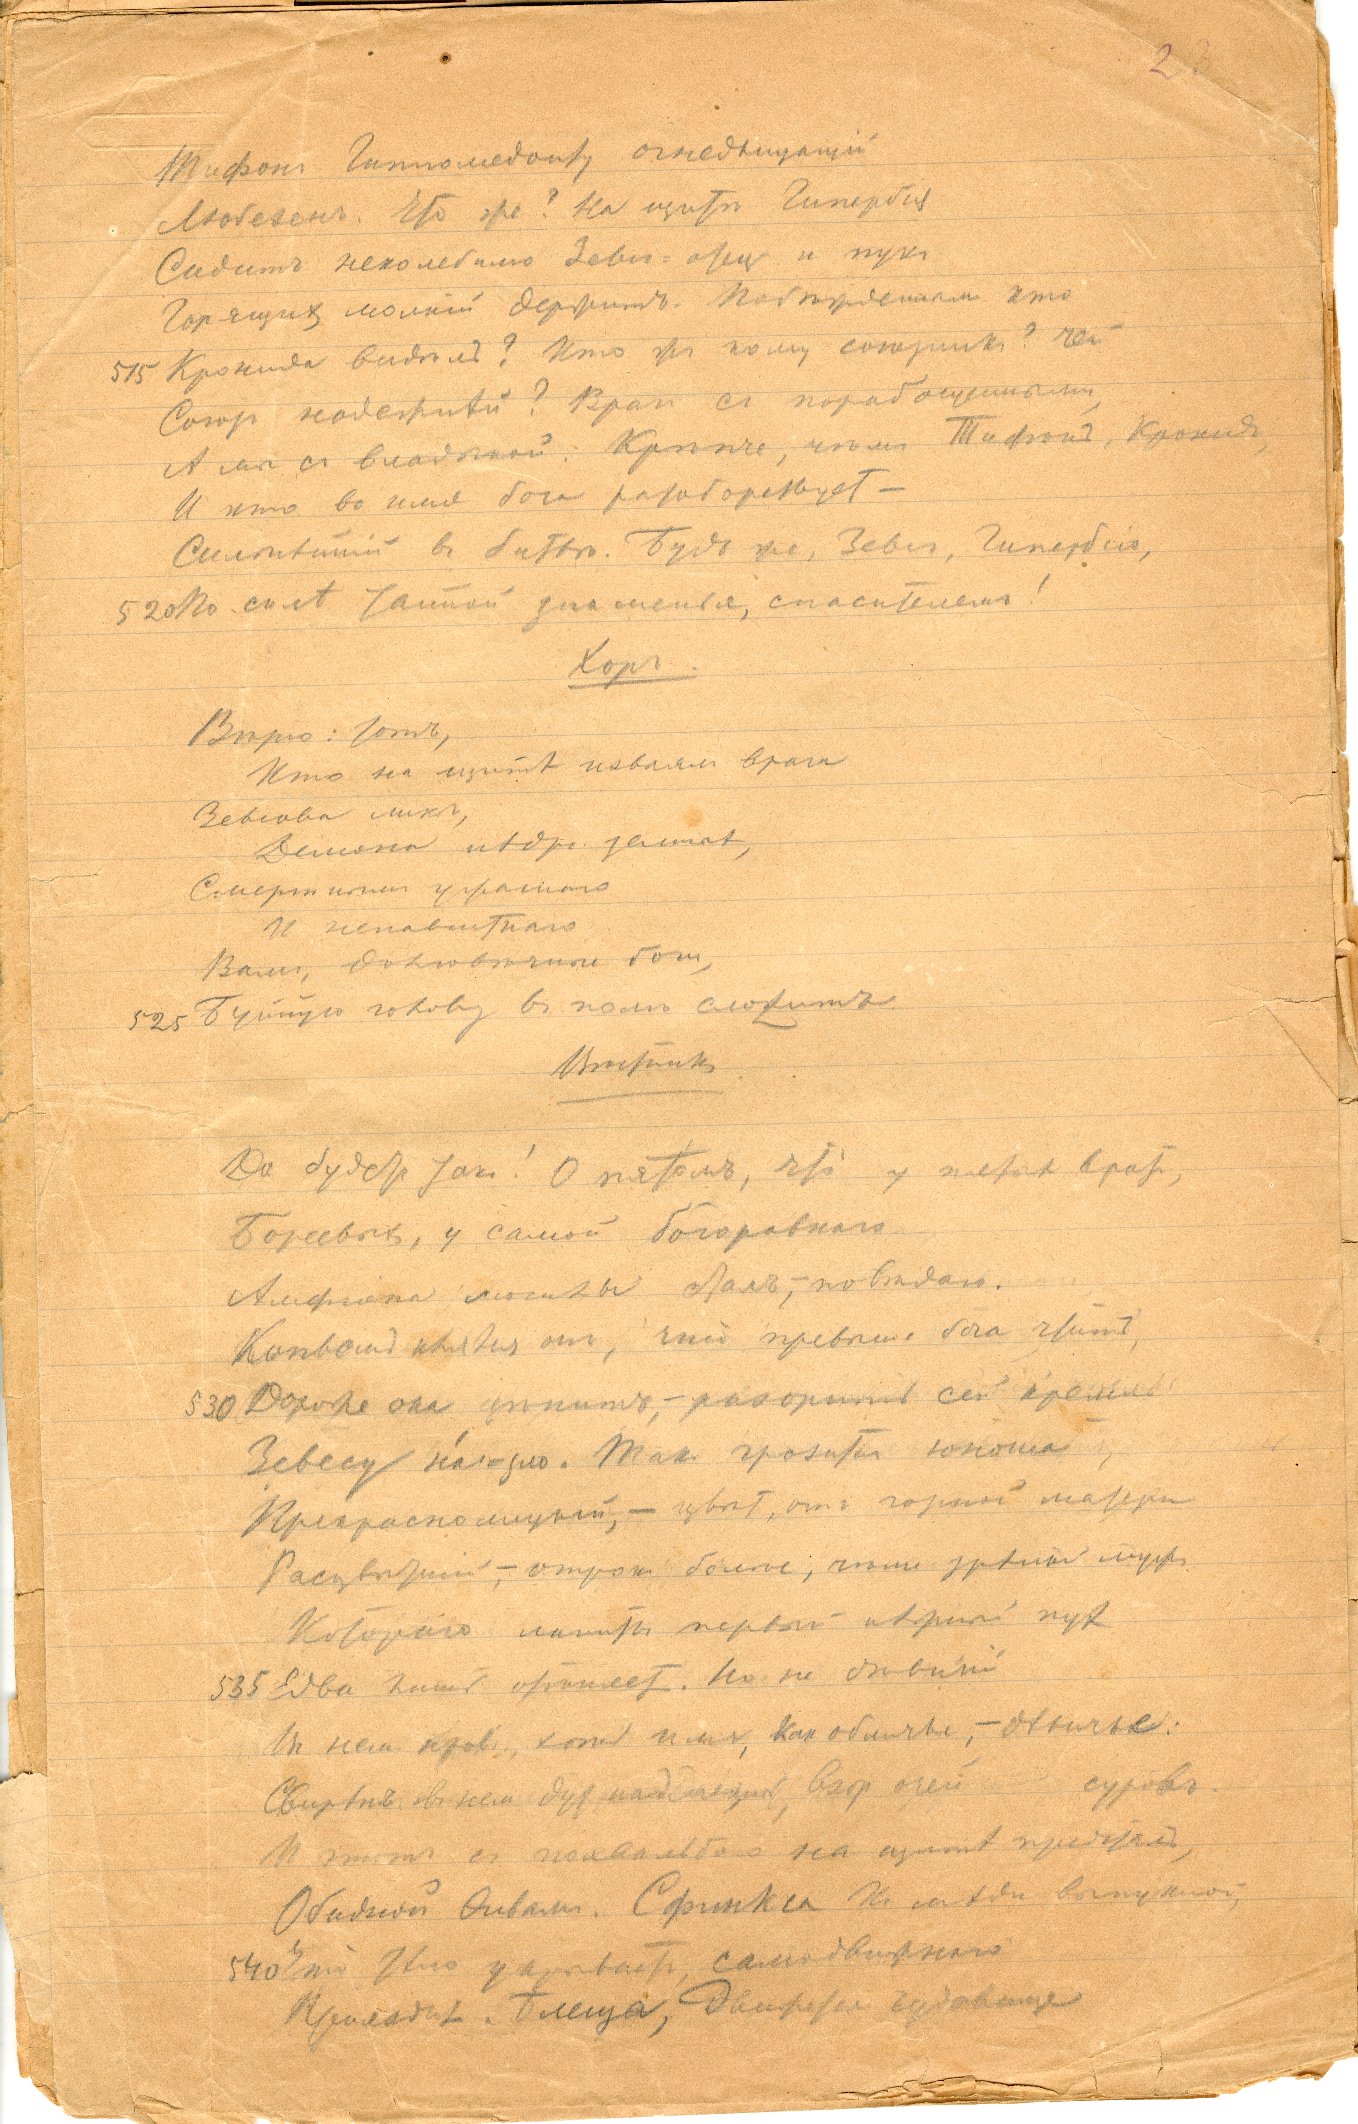 2
Тифонъ Гиппомедонту огнедышащій
Любезенъ. Что же? На щитѣ Гипербія
Сидитъ неколебимо Зевсъ-отецъ и пукъ
Горящихъ молній держитъ. Побѣжденнымъ кто
515 Кронида видѣлъ? Кто же кому союзникъ? Чей
Союзъ надежнѣй? Врагъ съ порабощенными,
А мы съ владыкой. Крѣпче, чѣмъ Тифонъ, Кронидъ,
И кто во имя бога ратоборствуетъ —
Сильнѣйшій въ битвѣ. Будь же, Зевсъ, Гипербію,
520 По силѣ тайной знаменья, спасителемъ!
Хоръ.
Вѣрю: тотъ,
Кто на щитѣ изваялъ врага
Зевсова ликъ,
Демона нѣдръ земныхъ,
Смертнымъ ужаснаго
И ненавистнаго
Вамъ, долговѣчные боги,
525 Буйную голову въ полѣ сложитъ.
Вѣстникъ
Да будетъ такъ! О пятомъ, что у пятыхъ вратъ,
Бореевыхъ, у самой богоравнаго
Амфіона могилы сталъ,— повѣдаю.
Копьемъ клянется онъ, что превыше бога чтитъ,
530 Дороже ока цѣнитъ,— разорить сей кремль
Зевесу на́-зло. Такъ грозится юноша
Прекраснолицый,— цвѣтъ, отъ горной матери
Расцвѣтшій,— отрокъ болѣе, чѣмъ зрѣлый мужъ
Котораго ланиты первый нѣжный пухъ
535 Едва лишь оттѣняетъ. Но не дѣвичій
Въ немъ нравъ, хоть имя, какъ обличье,— дѣвичье:
Свирѣпъ въ немъ духъ надменный, взоръ очей суровъ.
И этотъ съ похвальбою на щитѣ предсталъ,
Обидной Ѳивамъ. Сфинкса изъ мѣди выпуклой,
540 Что тѣло укрываетъ, самодвижнаго
Приладилъ. Блеща, движется чудовище